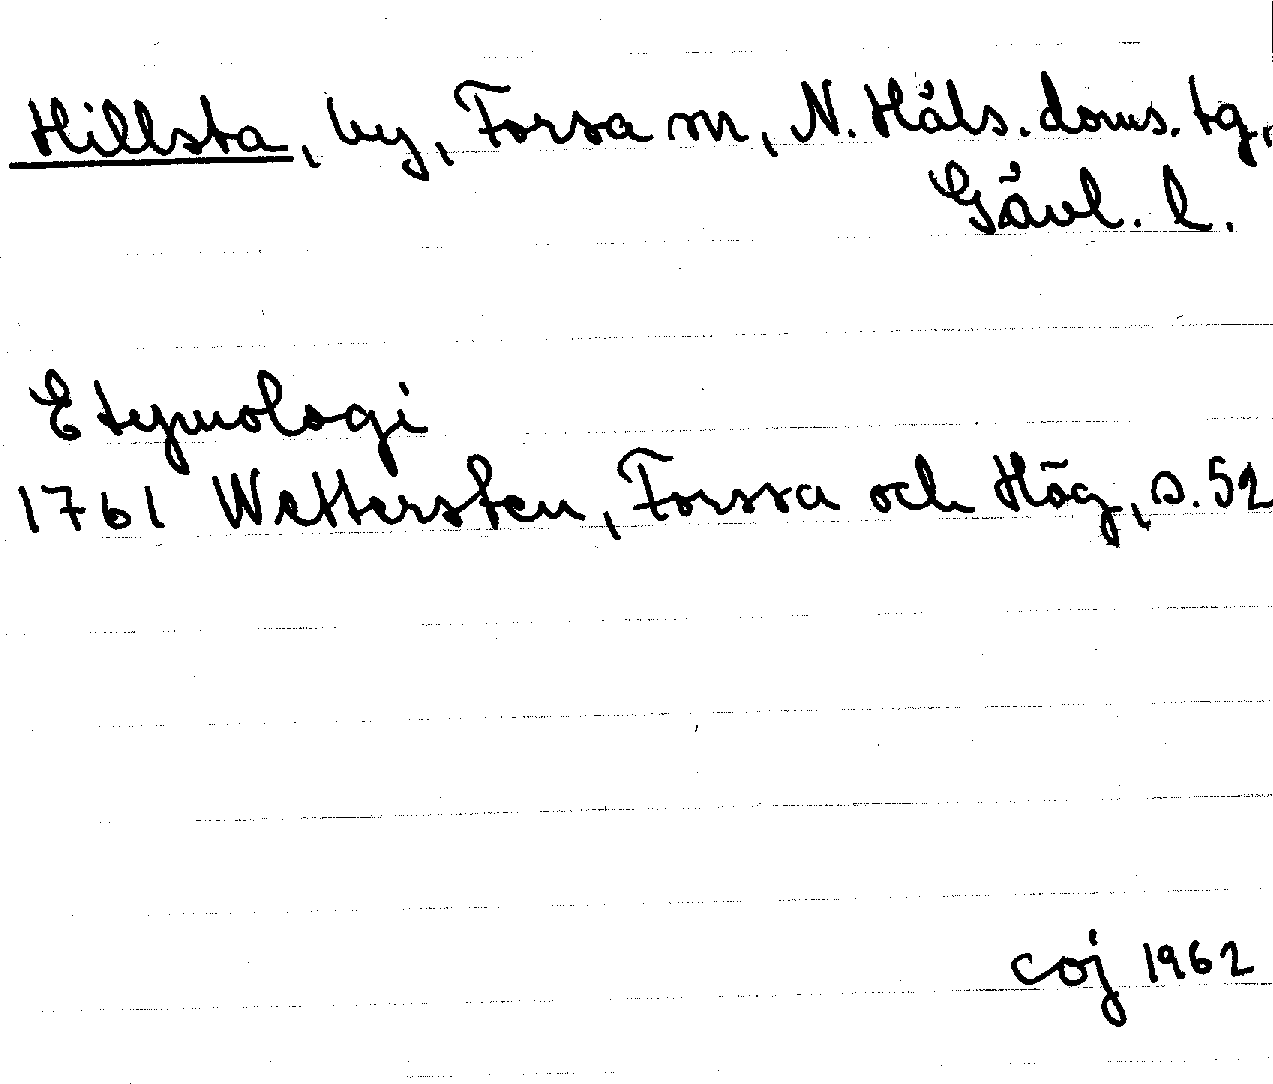 Hillsta, by, Forsa sn, N. Häls. doms. tg,
Gävl. l.
Etymologi
1761 Wettersten, Forssa och Hög, s. 52
coj 1962